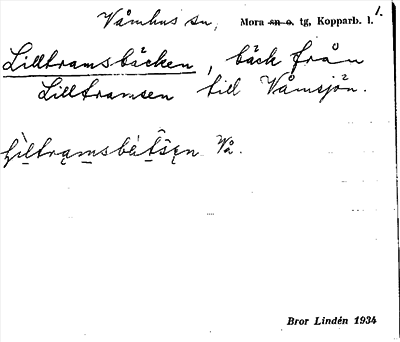 Våmhus sn, Mora sn o. tg, Kopparb. l. 1.
Lilltramsbäcken, bäck från
Lilltramsen till Våmsjön.
Vå.
Bror Lindén 1934